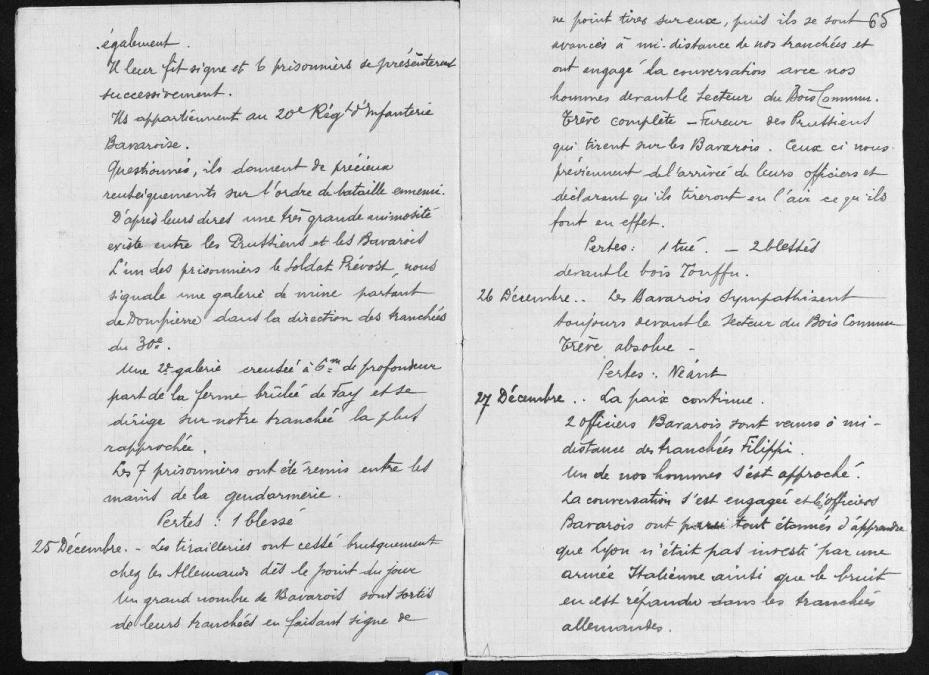 également.
Il leur fit signe et 6 prisonniers se présentèrent
successivement.
Ils appartiennent au 20e Régt d'Infanterie
Bavaroise.
Questionnés, ils donnent de précieux
renseignements sur l'ordre de bataille ennemi.
D'après leurs dires une très grande animosité
existe entre les Prussiens et les Bavarois
L'un des prisonniers le soldat Prévost, nous
signale une galerie de mine partant
de Dompierre dans la direction des tranchées
du 30e.
Une 2e galerie creusée à 6m de profondeur
part de la ferme brûlée de Fay et se
dirige sur notre tranchée la plus
rapprochée.
Les 7 prisonniers ont été remis entre les
mains de la gendarmerie.
Pertes : 1 blessé
25 Décembre. - Les tirailleries ont cessé brusquement
chez les Allemands dès le point du jour
Un grand nombre de Bavarois sont sortis
de leurs tranchées en faisant signe de
65
ne point tirer sur eux, puis ils se sont
avancés à mi-distance de nos tranchées et
ont engagé la conversation avec nos
hommes devant le secteur du Bois Commun.
Trève complète - Fureur des Prussiens
qui tirent sur les Bavarois. Ceux ci nous
préviennent de l'arrivée de leurs officiers et
déclarent qu'ils tireront en l'air ce qu'ils
font en effet.
Pertes : 1 tué - 2 blessés
devant le bois Touffu.
26 Décembre.. Les Bavarois sympathisent
toujours devant le secteur du Bois Commun
Trève absolue -
Pertes : Néant
27 Décembre.. La paix continue.
2 officiers Bavarois sont venus à mi-
distance des tranchées Filippi.
Un de nos hommes s'est approché.
La conversation s'est engagée et les officiers
Bavarois ont paru tout étonnés d'apprendre
que Lyon n'était pas investi par une
armée Italienne ainsi que le bruit
en est répandu dans les tranchées
allemandes.